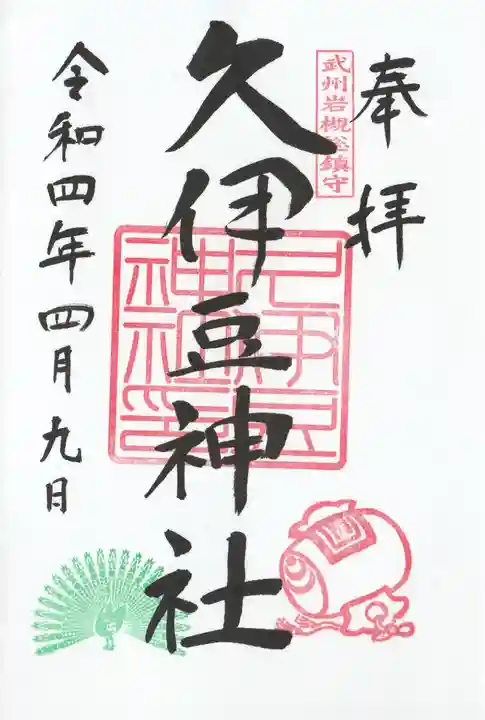 奉拝
武州岩槻総鎮守
久伊豆神社
久伊豆神社印
令和四年四月九日